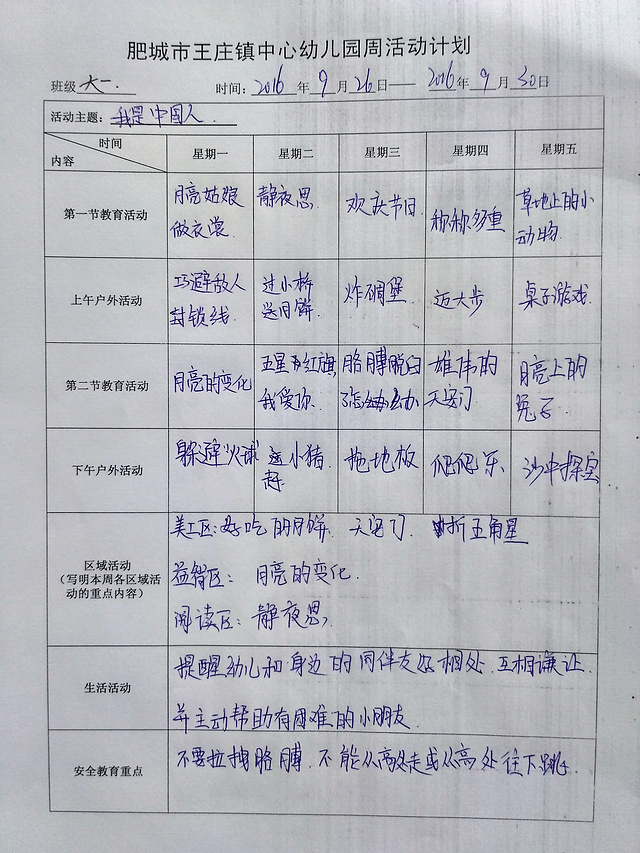 肥城市王庄镇中心幼儿园周活动计划
班级 大一. 时间：2016 年 9 月 26 日—— 2016 年 9 月 30 日
活动主题：我是中国人.
时间 星期一 星期二 星期三 星期四 星期五
内容
第一节教育活动 月亮姑娘做衣裳. 静夜思. 欢庆节日. 称称多重 草地上的小动物.
上午户外活动 巧避敌人封锁线. 过小桥送月饼. 炸碉堡. 迈大步 桌子游戏.
第二节教育活动 月亮的变化 五星红旗我爱你. 胳膊脱臼了怎么办 雄伟的天安门. 月亮上的兔子.
下午户外活动 躲避火球 赶小猪. 拖地板 爬爬乐. 沙中探宝
美工区：好吃的月饼. 天安门. 折五角星
区域活动
（写明本周各区域活
动的重点内容）
益智区： 月亮的变化.
阅读区：静夜思,
生活活动 提醒幼儿和身边的同伴友好相处.互相谦让.
并主动帮助有困难的小朋友.
安全教育重点 不要拉拽胳膊.不能从高处走或从高处往下跳.